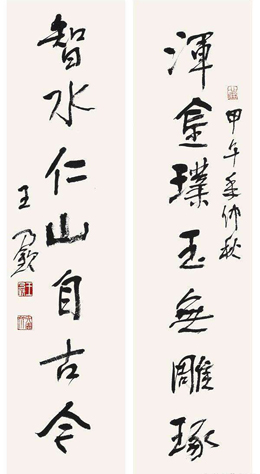 渾金璞玉無雕琢
甲午年仲秋
智水仁山自古今
王乃欽